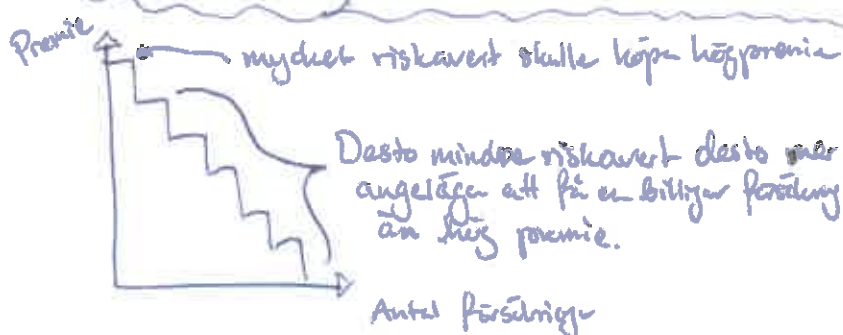 Premie
mycket riskavert skulle köpa högpremie
Desto mindre riskavert desto mer
angelägen att få en billigare försäkring
än hög premie.
Antal försäkringar